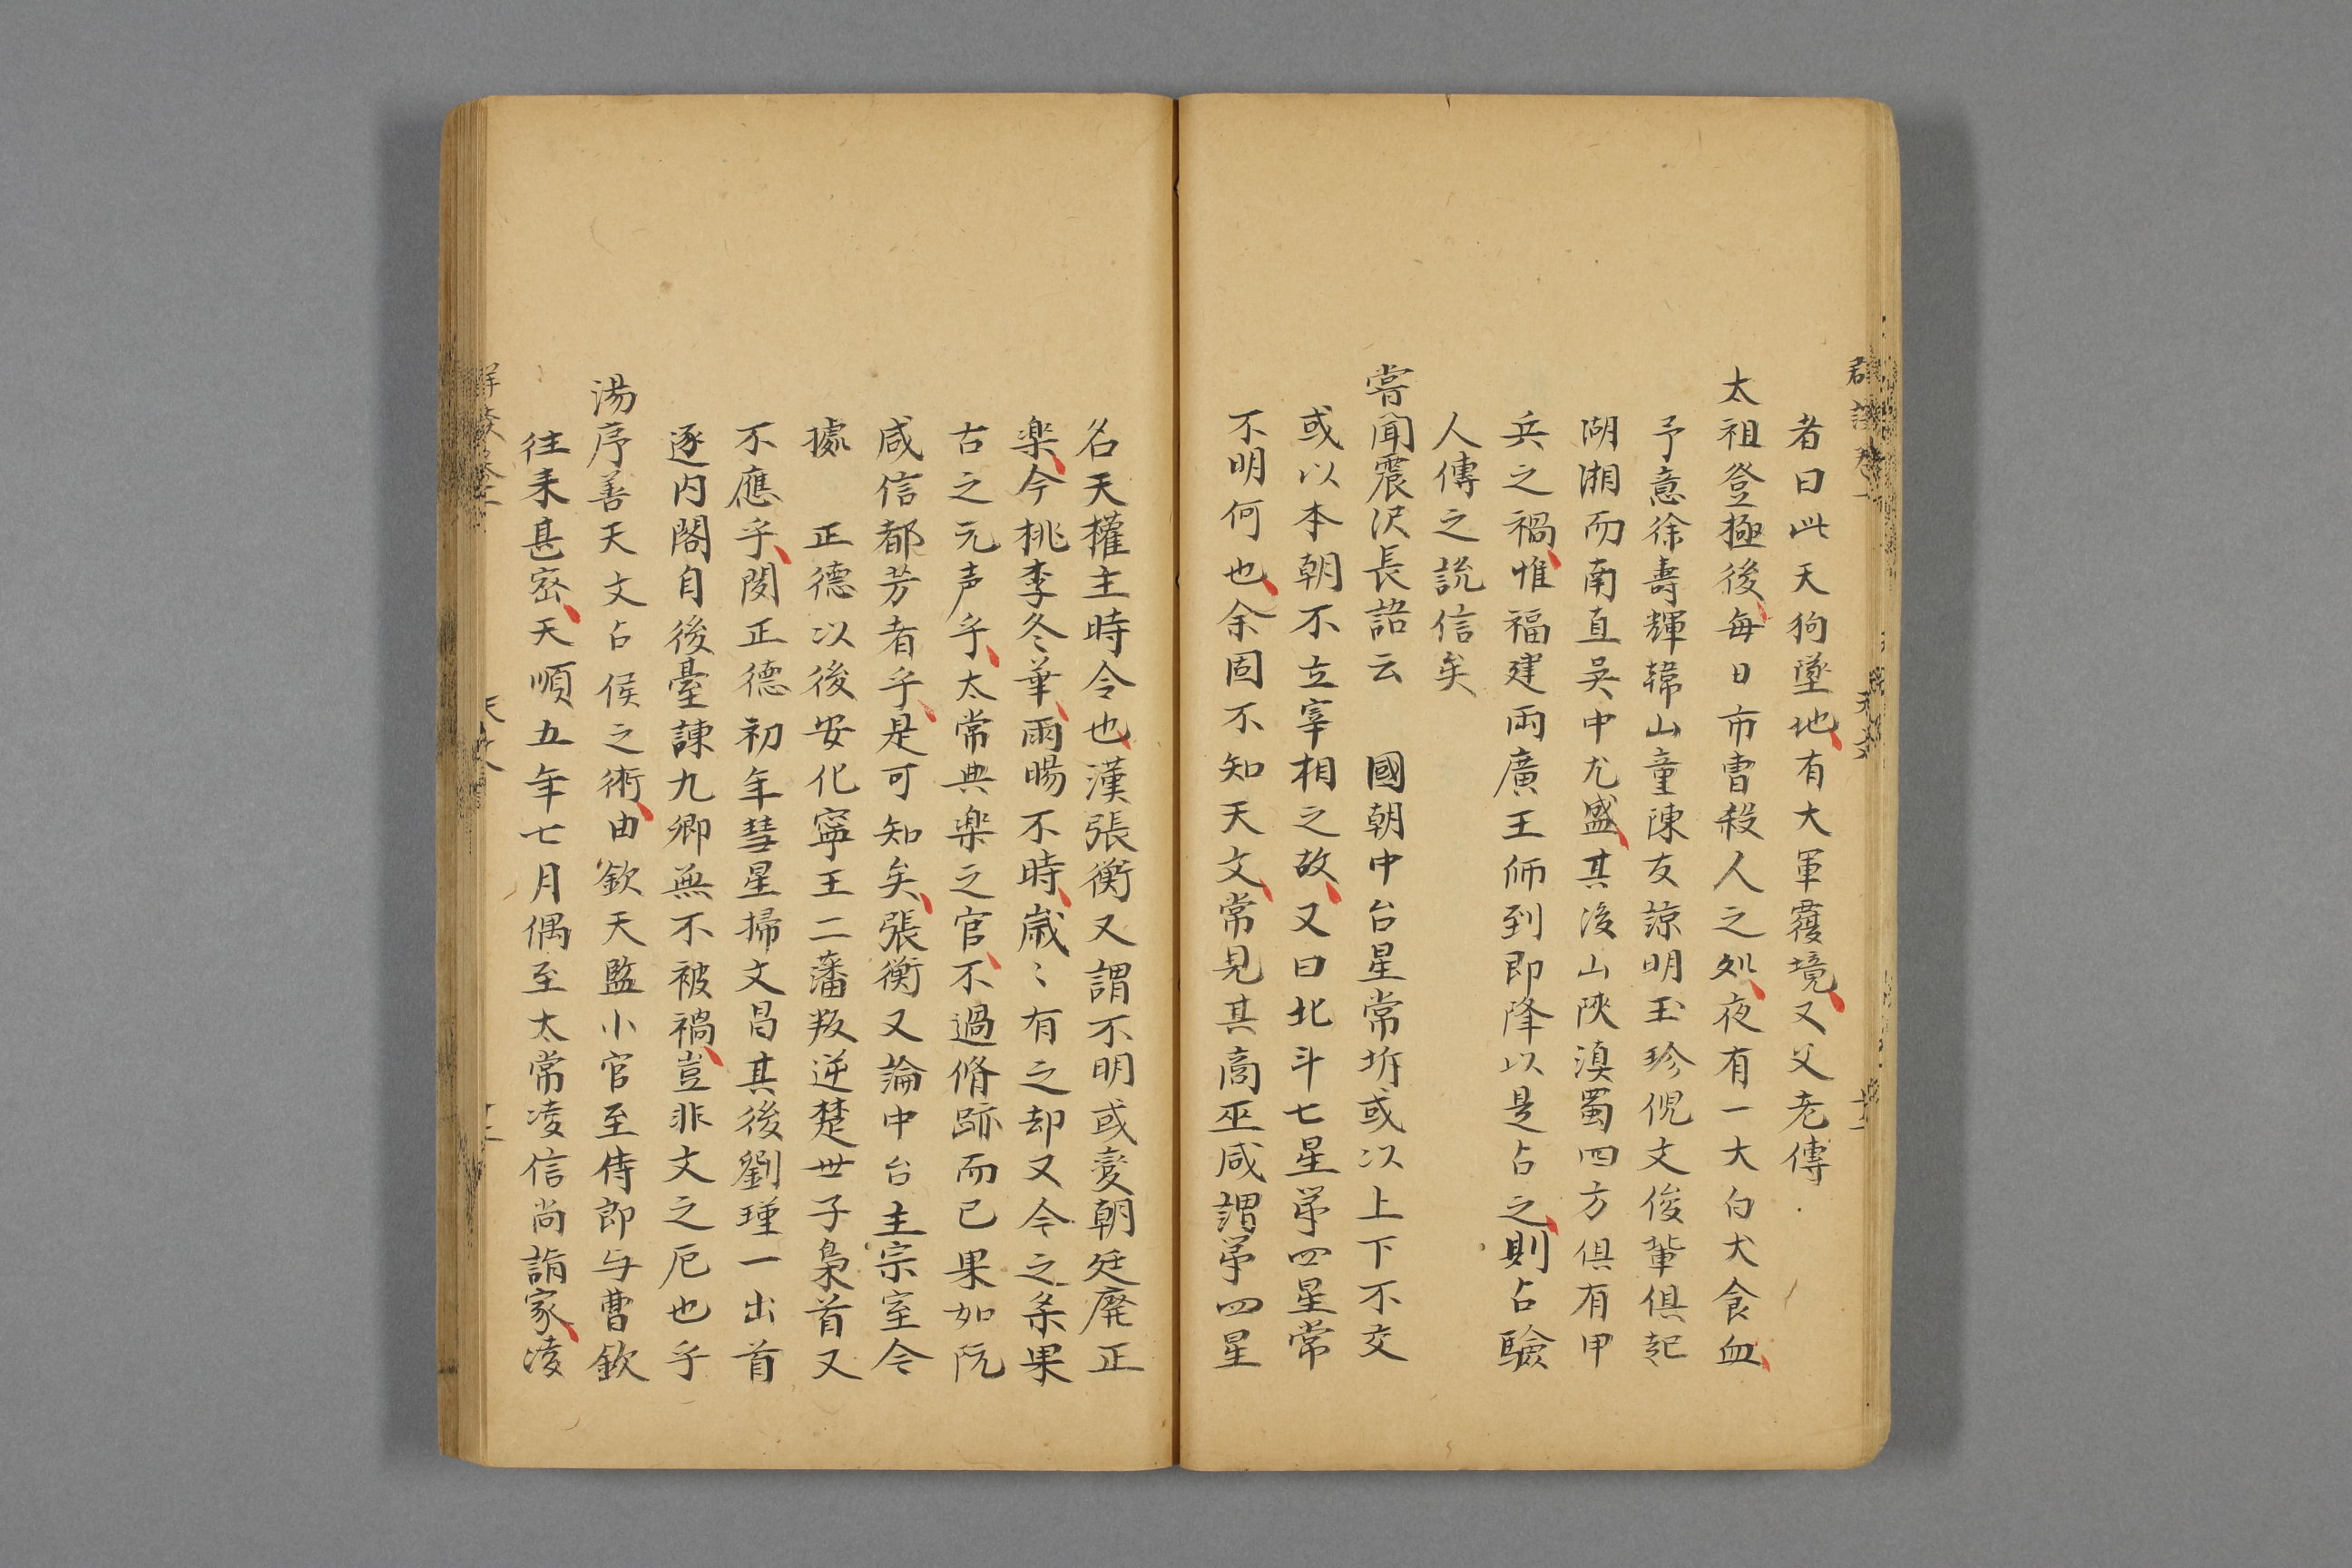 者曰此天狗墜地有大軍覆境又父老傳
太祖登極後每日市曹殺人之処夜有一大白犬食血
予意徐壽輝韓山童陳友諒明玉珍倪文俊輩俱起
湖湘而南直吳中尤盛其後山陝滇蜀四方俱有甲
兵之禍惟福建兩廣王师到即降以是占之則占驗
人傳之説信矣
嘗聞震沢長語云　國朝中台星常坼或以上下不交
或以本朝不立宰相之故又曰北斗七星苐四星常
不明何也余固不知天文常見其高巫咸謂苐四星
名天權主時令也漢張衡又謂不明或变朝廷廃正
楽今桃李冬華雨暘不時歲〻有之却又今之条果
古之元声乎太常典楽之官不過脩跡而已果如阮
咸信都芳者乎是可知矣張衡又論中台主宗室今
據　正德以後安化寧王二藩叛逆楚世子梟首又
不應乎閔正德初年彗星掃文昌其後劉瑾一出首
逐内閣自後臺諫九卿無不被禍豈非文之厄也乎
湯序善天文占侯之術由欽天監小官至侍郎与曹欽
往来甚密天順五年七月偶至太常凌信尚誚家凌
天文